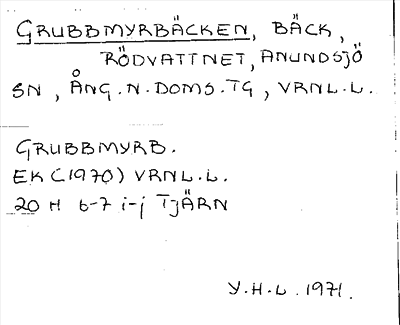 GRUBBMYRBÄCKEN, BÄCK,
RÖDVATTNET, ANUNDSJÖ
SN, ÅNG. N. DOMS. TG, VRNL. L.
GRUBBMYRB.
EK (1970) VRNL. L.
20 H 6-7 i-j TJÄRN
Y. H. L. 1971.